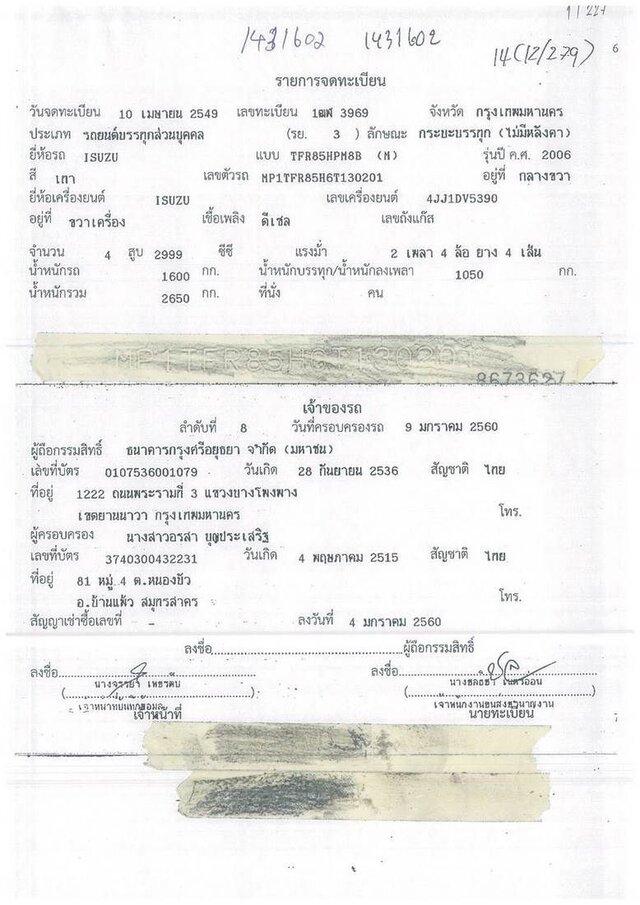 11 227
1431602 1431602
14(12/279) 6
รายการจดทะเบียน
วันจดทะเบียน 10 เมษายน 2549 เลขทะเบียน 1ฒฬ 3969 จังหวัด กรุงเทพมหานคร
ประเภท รถยนต์บรรทุกส่วนบุคคล (รย. 3 ) ลักษณะ กระบะบรรทุก (ไม่มีหลังคา)
ยี่ห้อรถ ISUZU แบบ TFR85HPM8B (M) รุ่นปี ค.ศ. 2006
สี เทา เลขตัวรถ MP1TFR85H6T130201 อยู่ที่ กลางขวา
ยี่ห้อเครื่องยนต์ ISUZU เลขเครื่องยนต์ 4JJ1DV5390
อยู่ที่ ขวาเครื่อง เชื้อเพลิง ดีเซล เลขถังแก๊ส
จำนวน 4 สูบ 2999 ซีซี แรงม้า 2 เพลา 4 ล้อ ยาง 4 เส้น
น้ำหนักรถ 1600 กก. น้ำหนักบรรทุก/น้ำหนักลงเพลา 1050 กก.
น้ำหนักรวม 2650 กก. ที่นั่ง คน
MP1TFR85H6T130201
8673627
เจ้าของรถ
ลำดับที่ 8 วันที่ครอบครองรถ 9 มกราคม 2560
ผู้ถือกรรมสิทธิ์ ธนาคารกรุงศรีอยุธยา จำกัด (มหาชน)
เลขที่บัตร 0107536001079 วันเกิด 28 กันยายน 2536 สัญชาติ ไทย
ที่อยู่ 1222 ถนนพระรามที่ 3 แขวงบางโพงพาง
เขตยานนาวา กรุงเทพมหานคร โทร.
ผู้ครอบครอง นางสาวอรสา บุญประเสริฐ
เลขที่บัตร 3740300432231 วันเกิด 4 พฤษภาคม 2515 สัญชาติ ไทย
ที่อยู่ 81 หมู่ 4 ต.หนองบัว
อ.บ้านแพ้ว สมุทรสาคร โทร.
สัญญาเช่าซื้อเลขที่ - ลงวันที่ 4 มกราคม 2560
ลงชื่อ ผู้ถือกรรมสิทธิ์
ลงชื่อ ลงชื่อ
นางจรรยา
เจ้าหน้าที่บันทึกข้อมูล เจ้าพนักงานขนส่งชำนาญงาน
เจ้าหน้าที่ นายทะเบียน